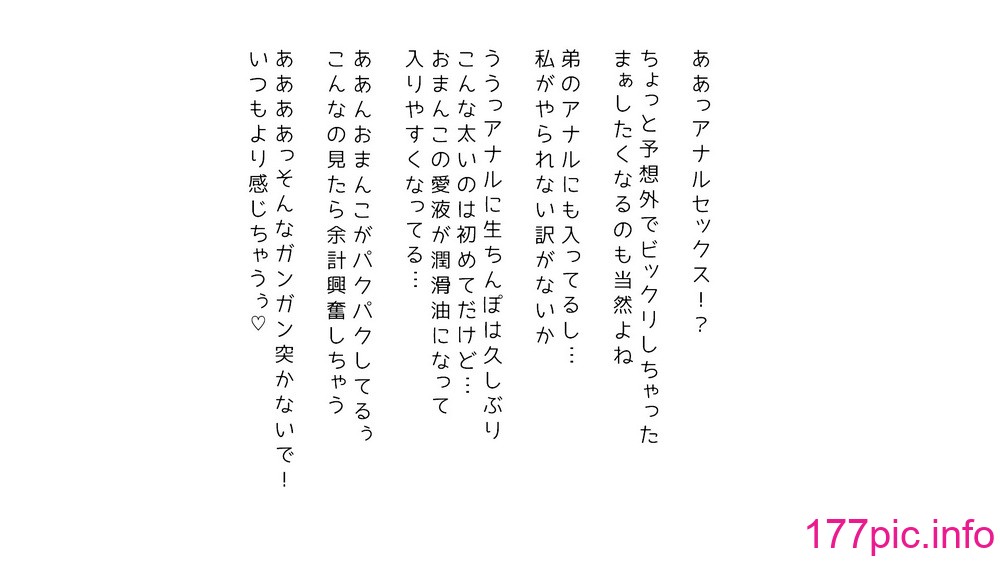 ああっアナルセックス！？
ちょっと予想外でビックリしちゃった
まぁしたくなるのも当然よね
弟のアナルにも入ってるし…
私がやられない訳がないか
ううっアナルに生ちんぽは久しぶり
こんな太いのは初めてだけど…
おまんこの愛液が潤滑油になって
入りやすくなってる…
ああんおまんこがパクパクしてるぅ
こんなの見たら余計興奮しちゃう
ああああっそんなガンガン突かないで！
いつもより感じちゃうぅ♡
177pic.info